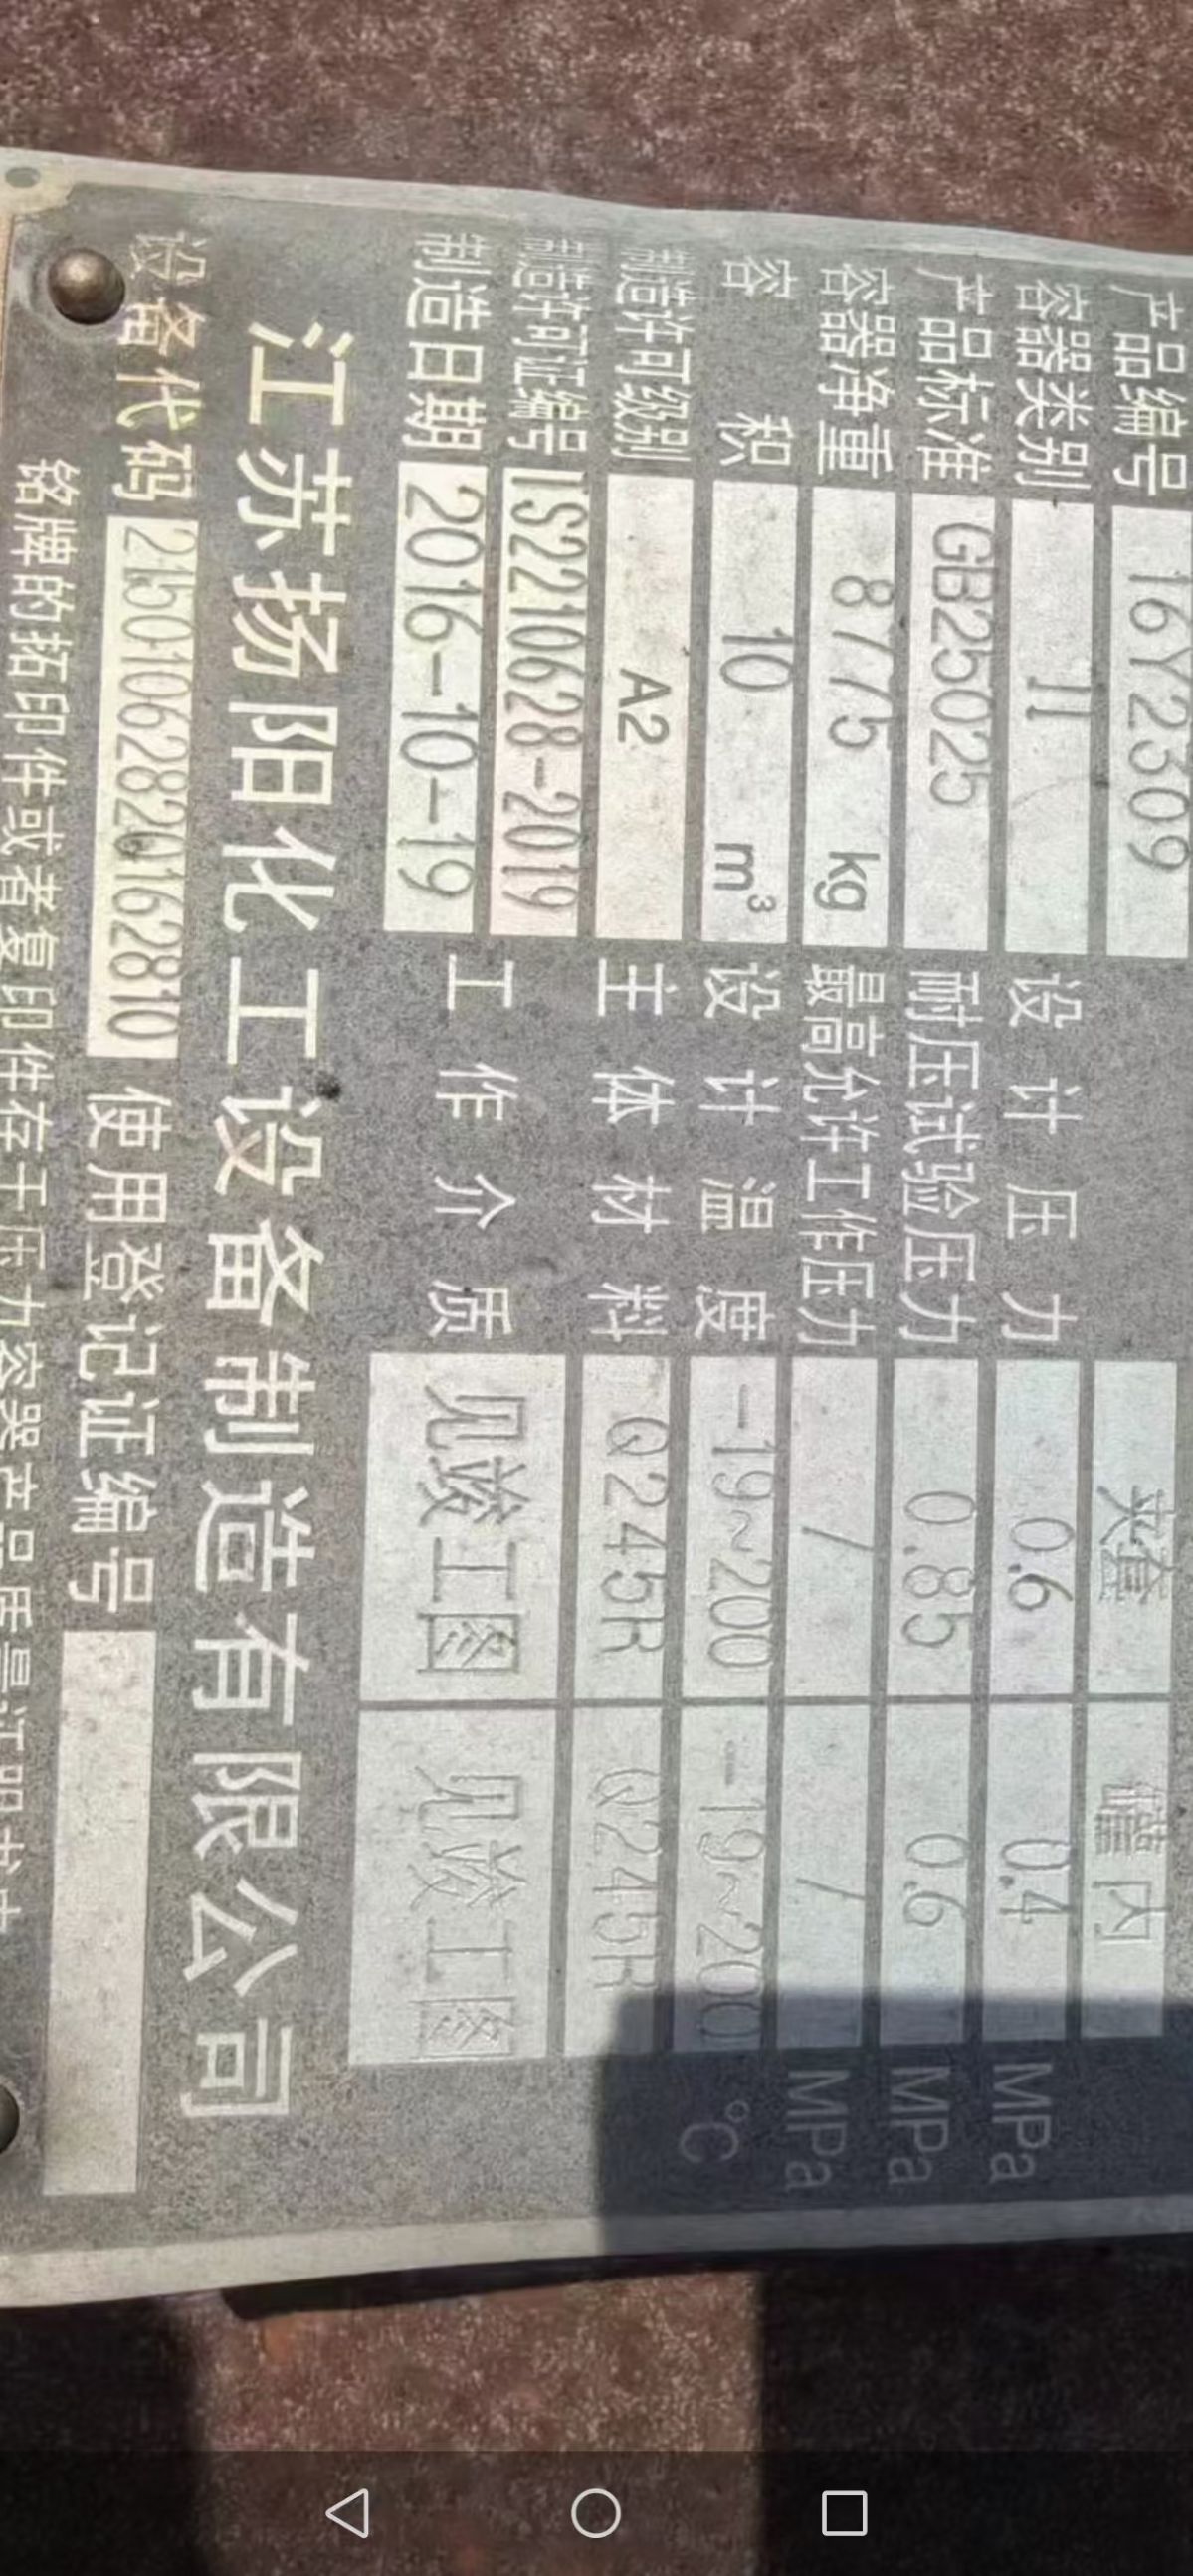 产品编号 16Y2309 夹套 罐内
容器类别 II 设计压力 0.6 0.4 MPa
产品标准 GB25025 耐压试验压力 0.85 0.6 MPa
容器净重 8775 kg 最高允许工作压力 / / MPa
容积 10 m³ 设计温度 -19~200 -19~200 ℃
制造许可级别 A2 主体材料 Q245R Q245R
制造许可证编号 TS2210628-2019 工作介质 见竣工图 见竣工图
制造日期 2016-10-19
江苏扬阳化工设备制造有限公司
设备代码 21501062820162810 使用登记证编号
铭牌的拓印件或者复印件存于压力容器产品质量证明书中